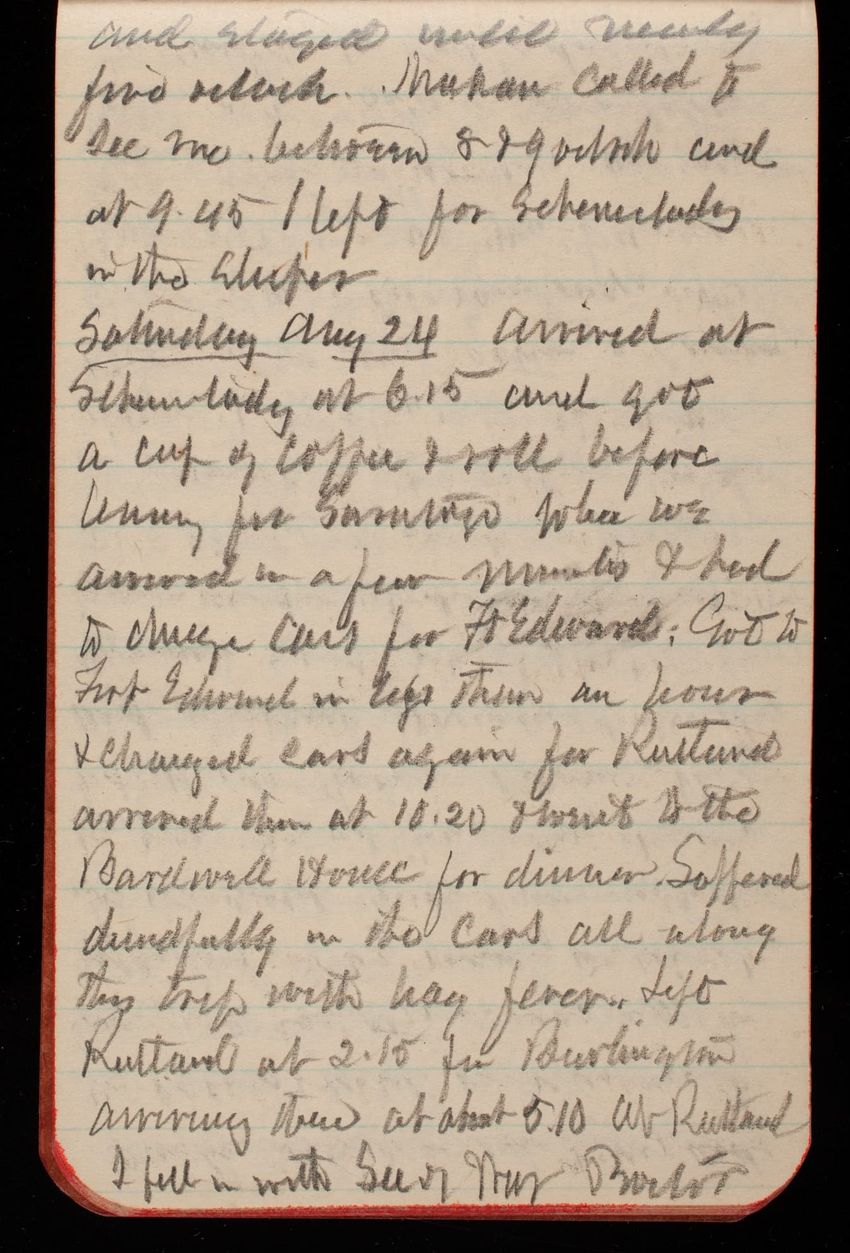 and stayed until nearly
five oclock. Mahan Called to
See me. between 8 & 9 oclock and
at 9.45 I left for Schenectady
in the Sleeper
Saturday Aug 24 Arrived at
Schenectady at 6.15 and got
a cup of coffee & roll before
leaving for Saratoga where we
arrived in a few minutes & had
to change cars for Ft Edward; Got to
Fort Edward in less than an hour
& changed cars again for Rutland
arrived there at 10.20 & went to the
Bardwell House for dinner. Suffered
dreadfully in the cars all along
this trip with hay fever. Left
Rutland at 2.15 for Burlington
arriving there at about 5.10 At Rutland
I fell in with Sec of War Proctor